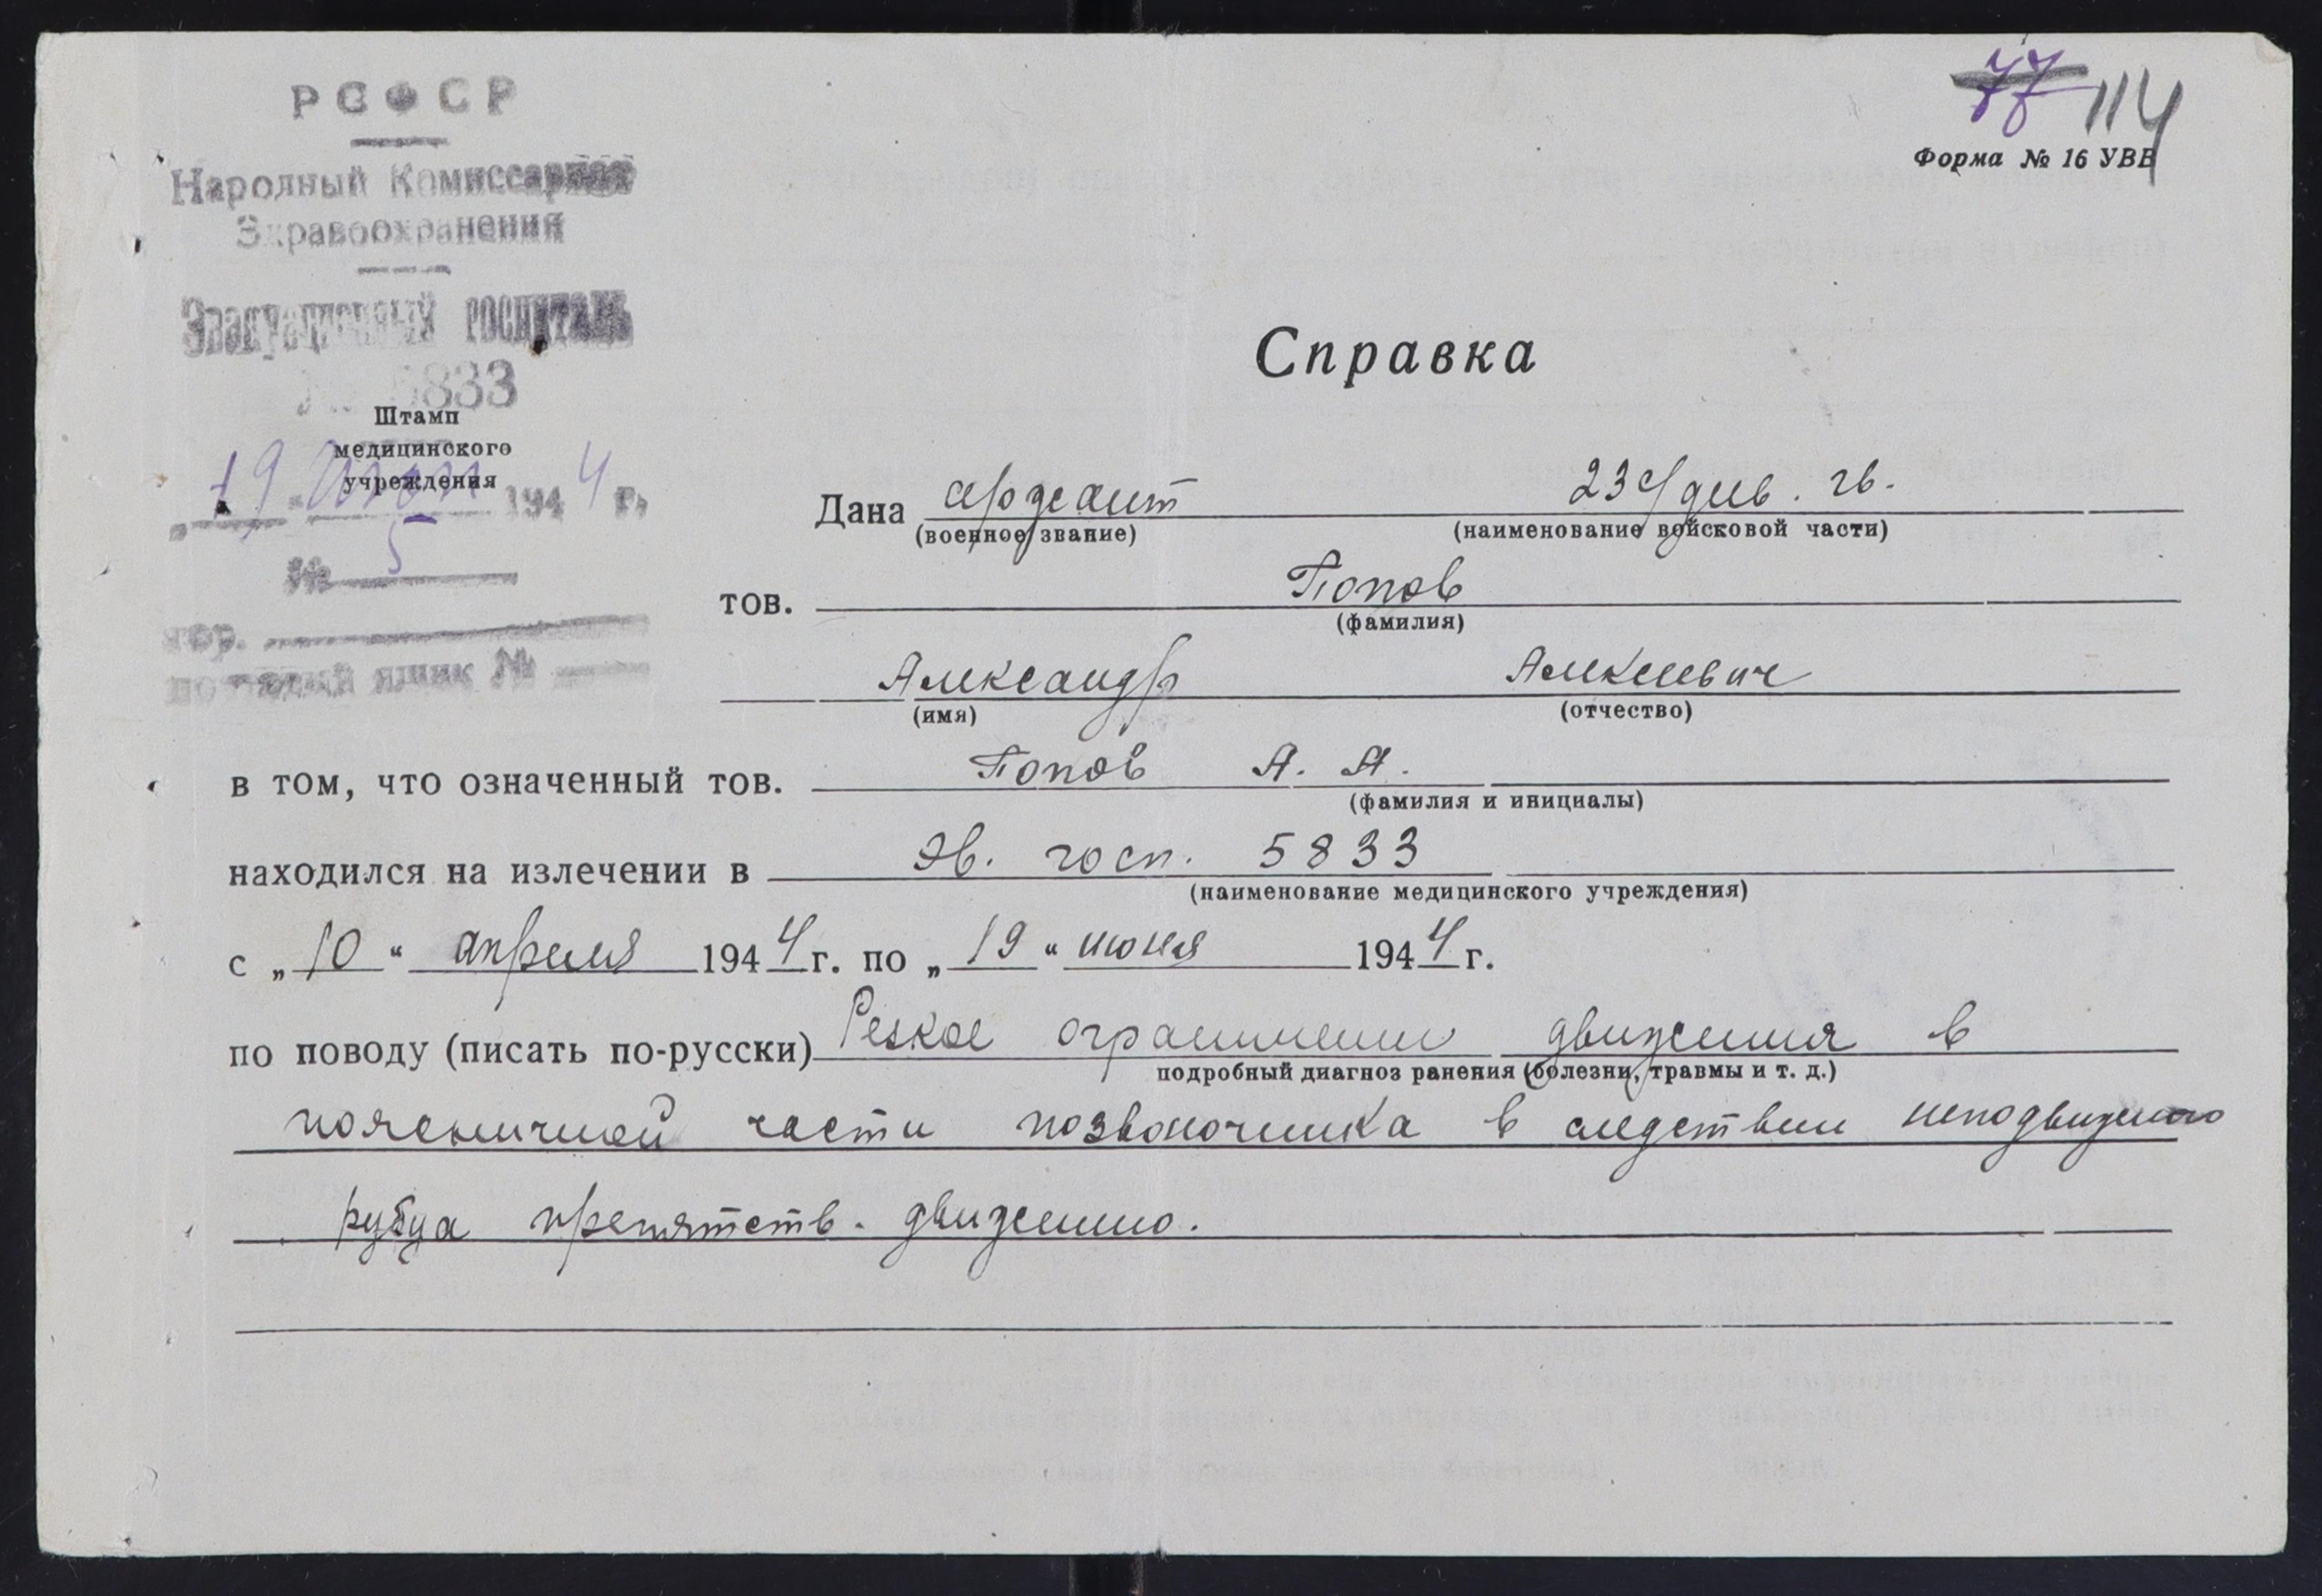 РСФСР
Народный Комиссариат
Здравоохранения
Эвакуационный госпиталь
№ 5833
Штамп
медицинского
учреждения
19 1944 г.
№ 5
гор.
почтовый ящик №
77 114
Форма № 16 УВВ
Справка
Дана сержант 23 с/див. гв.
(военное звание) (наименование войсковой части)
тов. Попов
(фамилия)
Александр Алексеевич
(имя) (отчество)
в том, что означенный тов. Попов А. А.
(фамилия и инициалы)
находился на излечении в Эв. госп. 5833
(наименование медицинского учреждения)
с „10“ апреля 1944 г. по „19“ июня 1944 г.
по поводу (писать по-русски) Резкое ограничение движения в
подробный диагноз ранения (болезни, травмы и т. д.)
поясничной части позвоночника в следствии неподвижного
рубца препятств. движению.